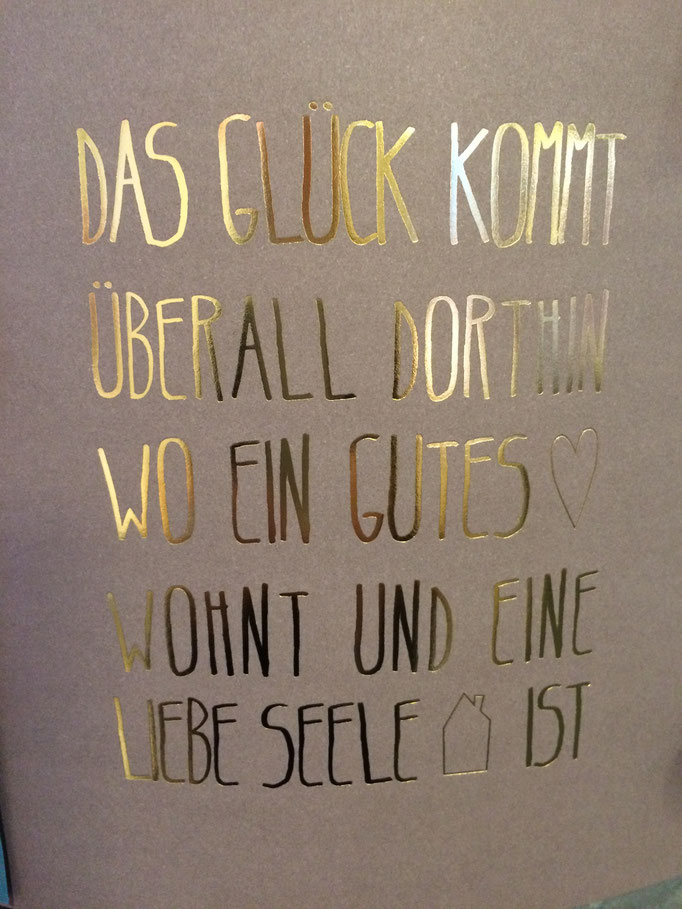 DAS GLÜCK KOMMT
ÜBERALL DORTHIN
WO EIN GUTES
WOHNT UND EINE
LIEBE SEELE IST